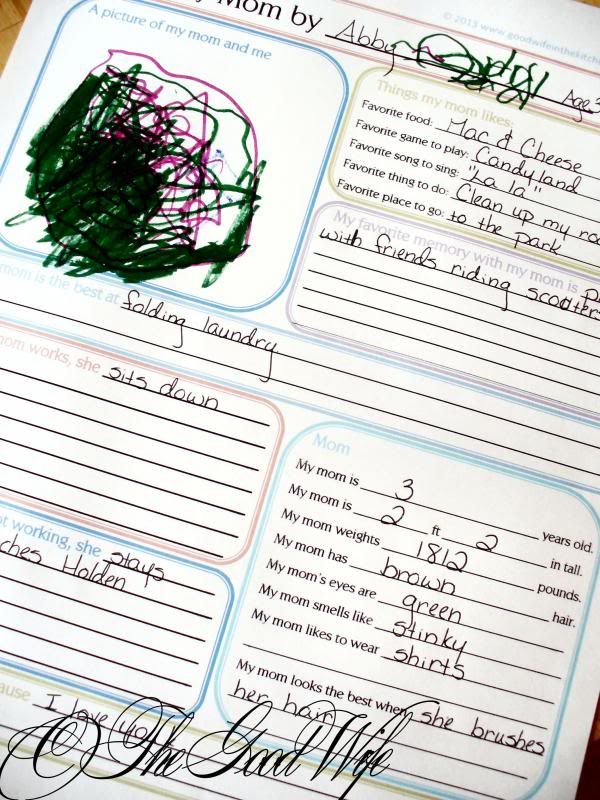 © 2013 www.goodwifeinthekitche
Mom by Abby
Age 3
A picture of my mom and me
Things my mom likes:
Favorite food: Mac & Cheese
Favorite game to play: Candyland
Favorite song to sing: "La la"
Favorite thing to do: Clean up my roo
Favorite place to go: to the park
My favorite memory with my mom is
with friends riding scooters
mom is the best at folding laundry
mom works, she sits down
ot working, she stays
ches Holden
Mom
My mom is 3 years old.
My mom is 2 ft 2 in tall.
My mom weights 1812 pounds.
My mom has brown hair.
My mom's eyes are green
My mom smells like stinky
My mom likes to wear shirts
My mom looks the best when she brushes
her hair
ause I love you
© The Good Wife